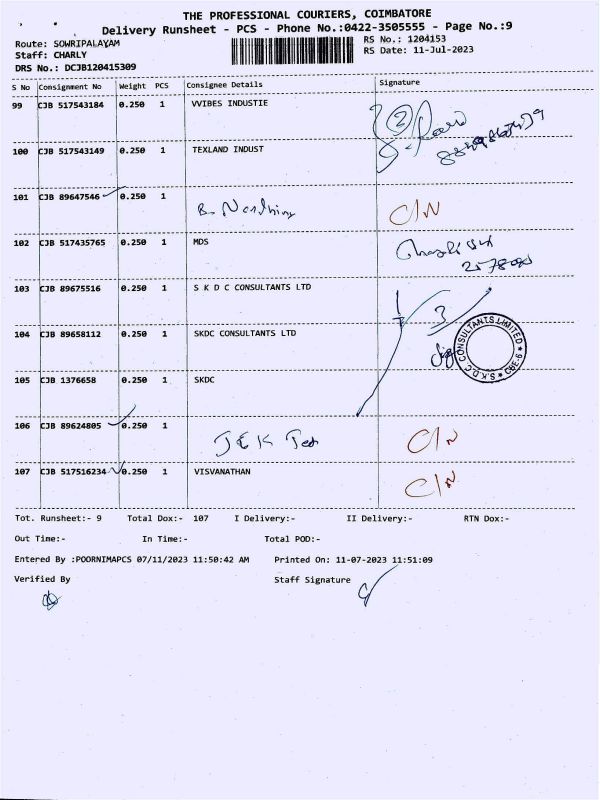 THE PROFESSIONAL COURIERS, COIMBATORE
Delivery Runsheet - PCS - Phone No.:0422-3505555 - Page No.:9
Route: SOWRIPALAYAM
RS No.: 1204153
Staff: CHARLY
RS Date: 11-Jul-2023
DRS No.: DCJB120415309
S No Consignment No Weight PCS Consignee Details Signature
99 CJB 517543184 0.250 1 VVIBES INDUSTIE
2
100 CJB 517543149 0.250 1 TEXLAND INDUST
101 CJB 89647546 0.250 1 C/N
102 CJB 517435765 0.250 1 MDS
103 CJB 89675516 0.250 1 S K D C CONSULTANTS LTD
3
104 CJB 89658112 0.250 1 SKDC CONSULTANTS LTD
S.K.D.C CONSULTANTS LIMITED * CBE-6 *
105 CJB 1376658 0.250 1 SKDC
106 CJB 89624805 0.250 1 C/N
107 CJB 517516234 0.250 1 VISVANATHAN C/N
Tot. Runsheet:- 9 Total Dox:- 107 I Delivery:- II Delivery:- RTN Dox:-
Out Time:- In Time:- Total POD:-
Entered By :POORNIMAPCS 07/11/2023 11:50:42 AM Printed On: 11-07-2023 11:51:09
Verified By Staff Signature